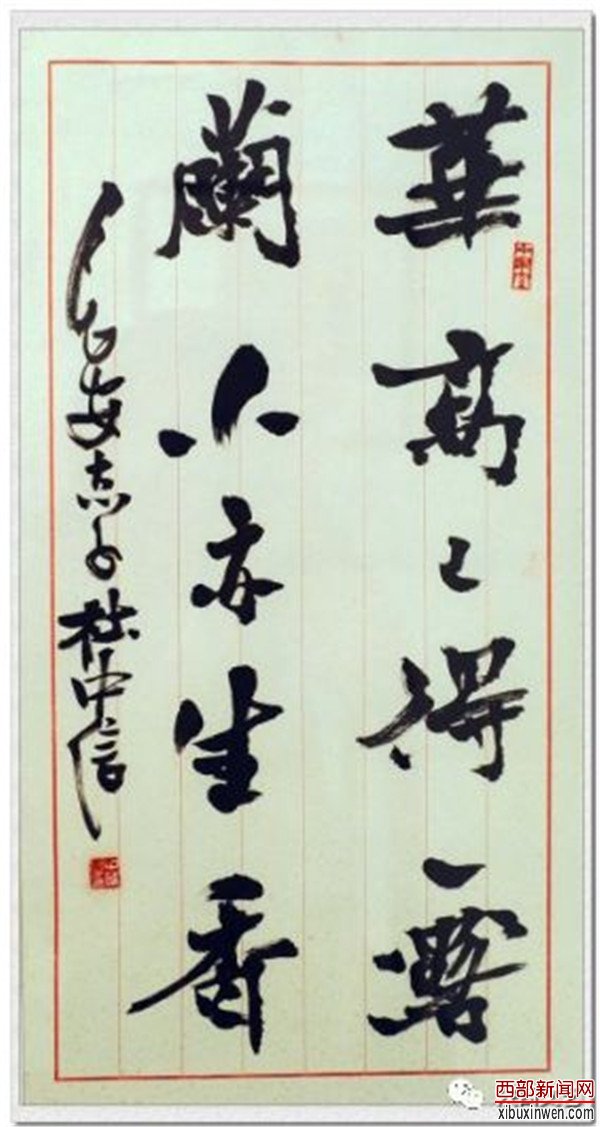 華高已得露
蘭小亦生香
杜中信
西部新闻网
xibuxinwen.com